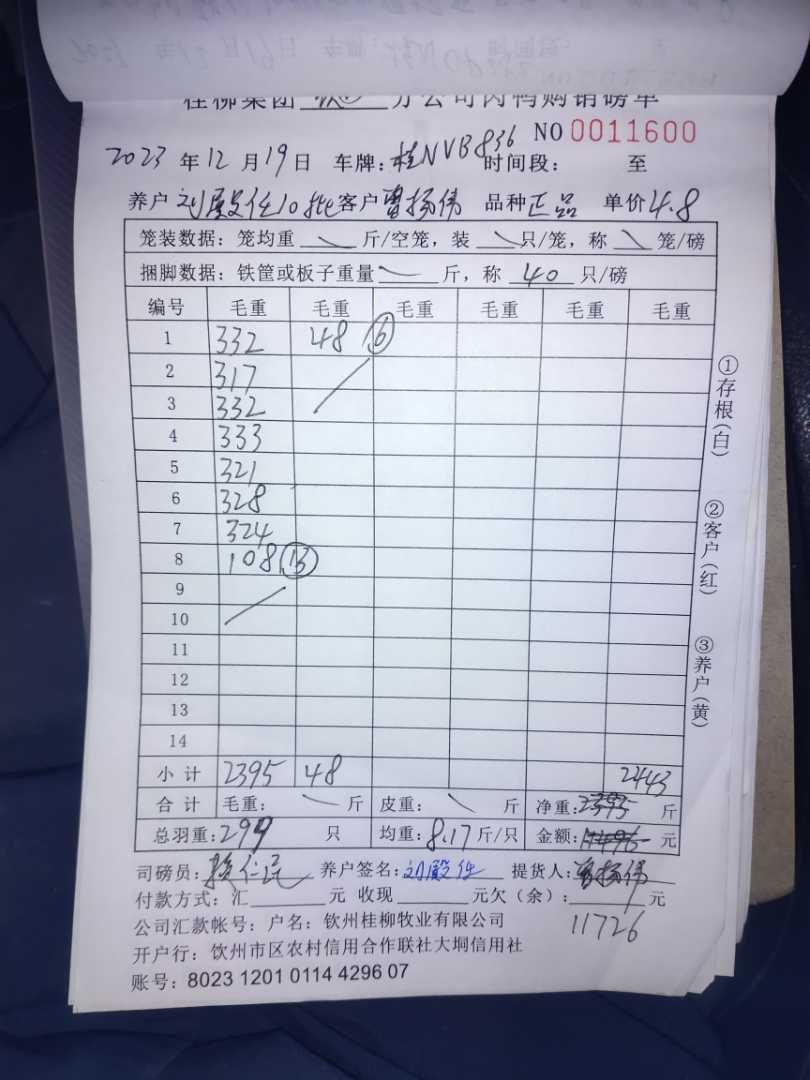 桂柳集团 钦① 分公司肉鸭购销磅单
NO 0011600
2023 年 12 月 19 日 车牌: 桂NVB836 时间段: 至
养户 刘殿任10批 客户 曹扬伟 品种 正品 单价 4.8
笼装数据: 笼均重 斤/空笼, 装 只/笼, 称 笼/磅
捆脚数据: 铁筐或板子重量 斤, 称 40 只/磅
编号 毛重 毛重 毛重 毛重 毛重 毛重
1 332 48 ⑥
2 317
3 332
4 333
5 321
6 328
7 324
8 108 ⑬
9
10
11
12
13
14
小 计 2395 48 2443
合 计 毛重: 斤 皮重: 斤 净重: 2395 斤
总羽重: 299 只 均重: 8.17 斤/只 金额: 元
司磅员: 仁民 养户签名: 刘殿任 提货人: 曹扬伟
付款方式: 汇 元 收现 元欠 (余): 元
11726
公司汇款帐号: 户名: 钦州桂柳牧业有限公司
开户行: 钦州市区农村信用合作联社大垌信用社
账号: 8023 1201 0114 4296 07
①存根(白)
②客户(红)
③养户(黄)